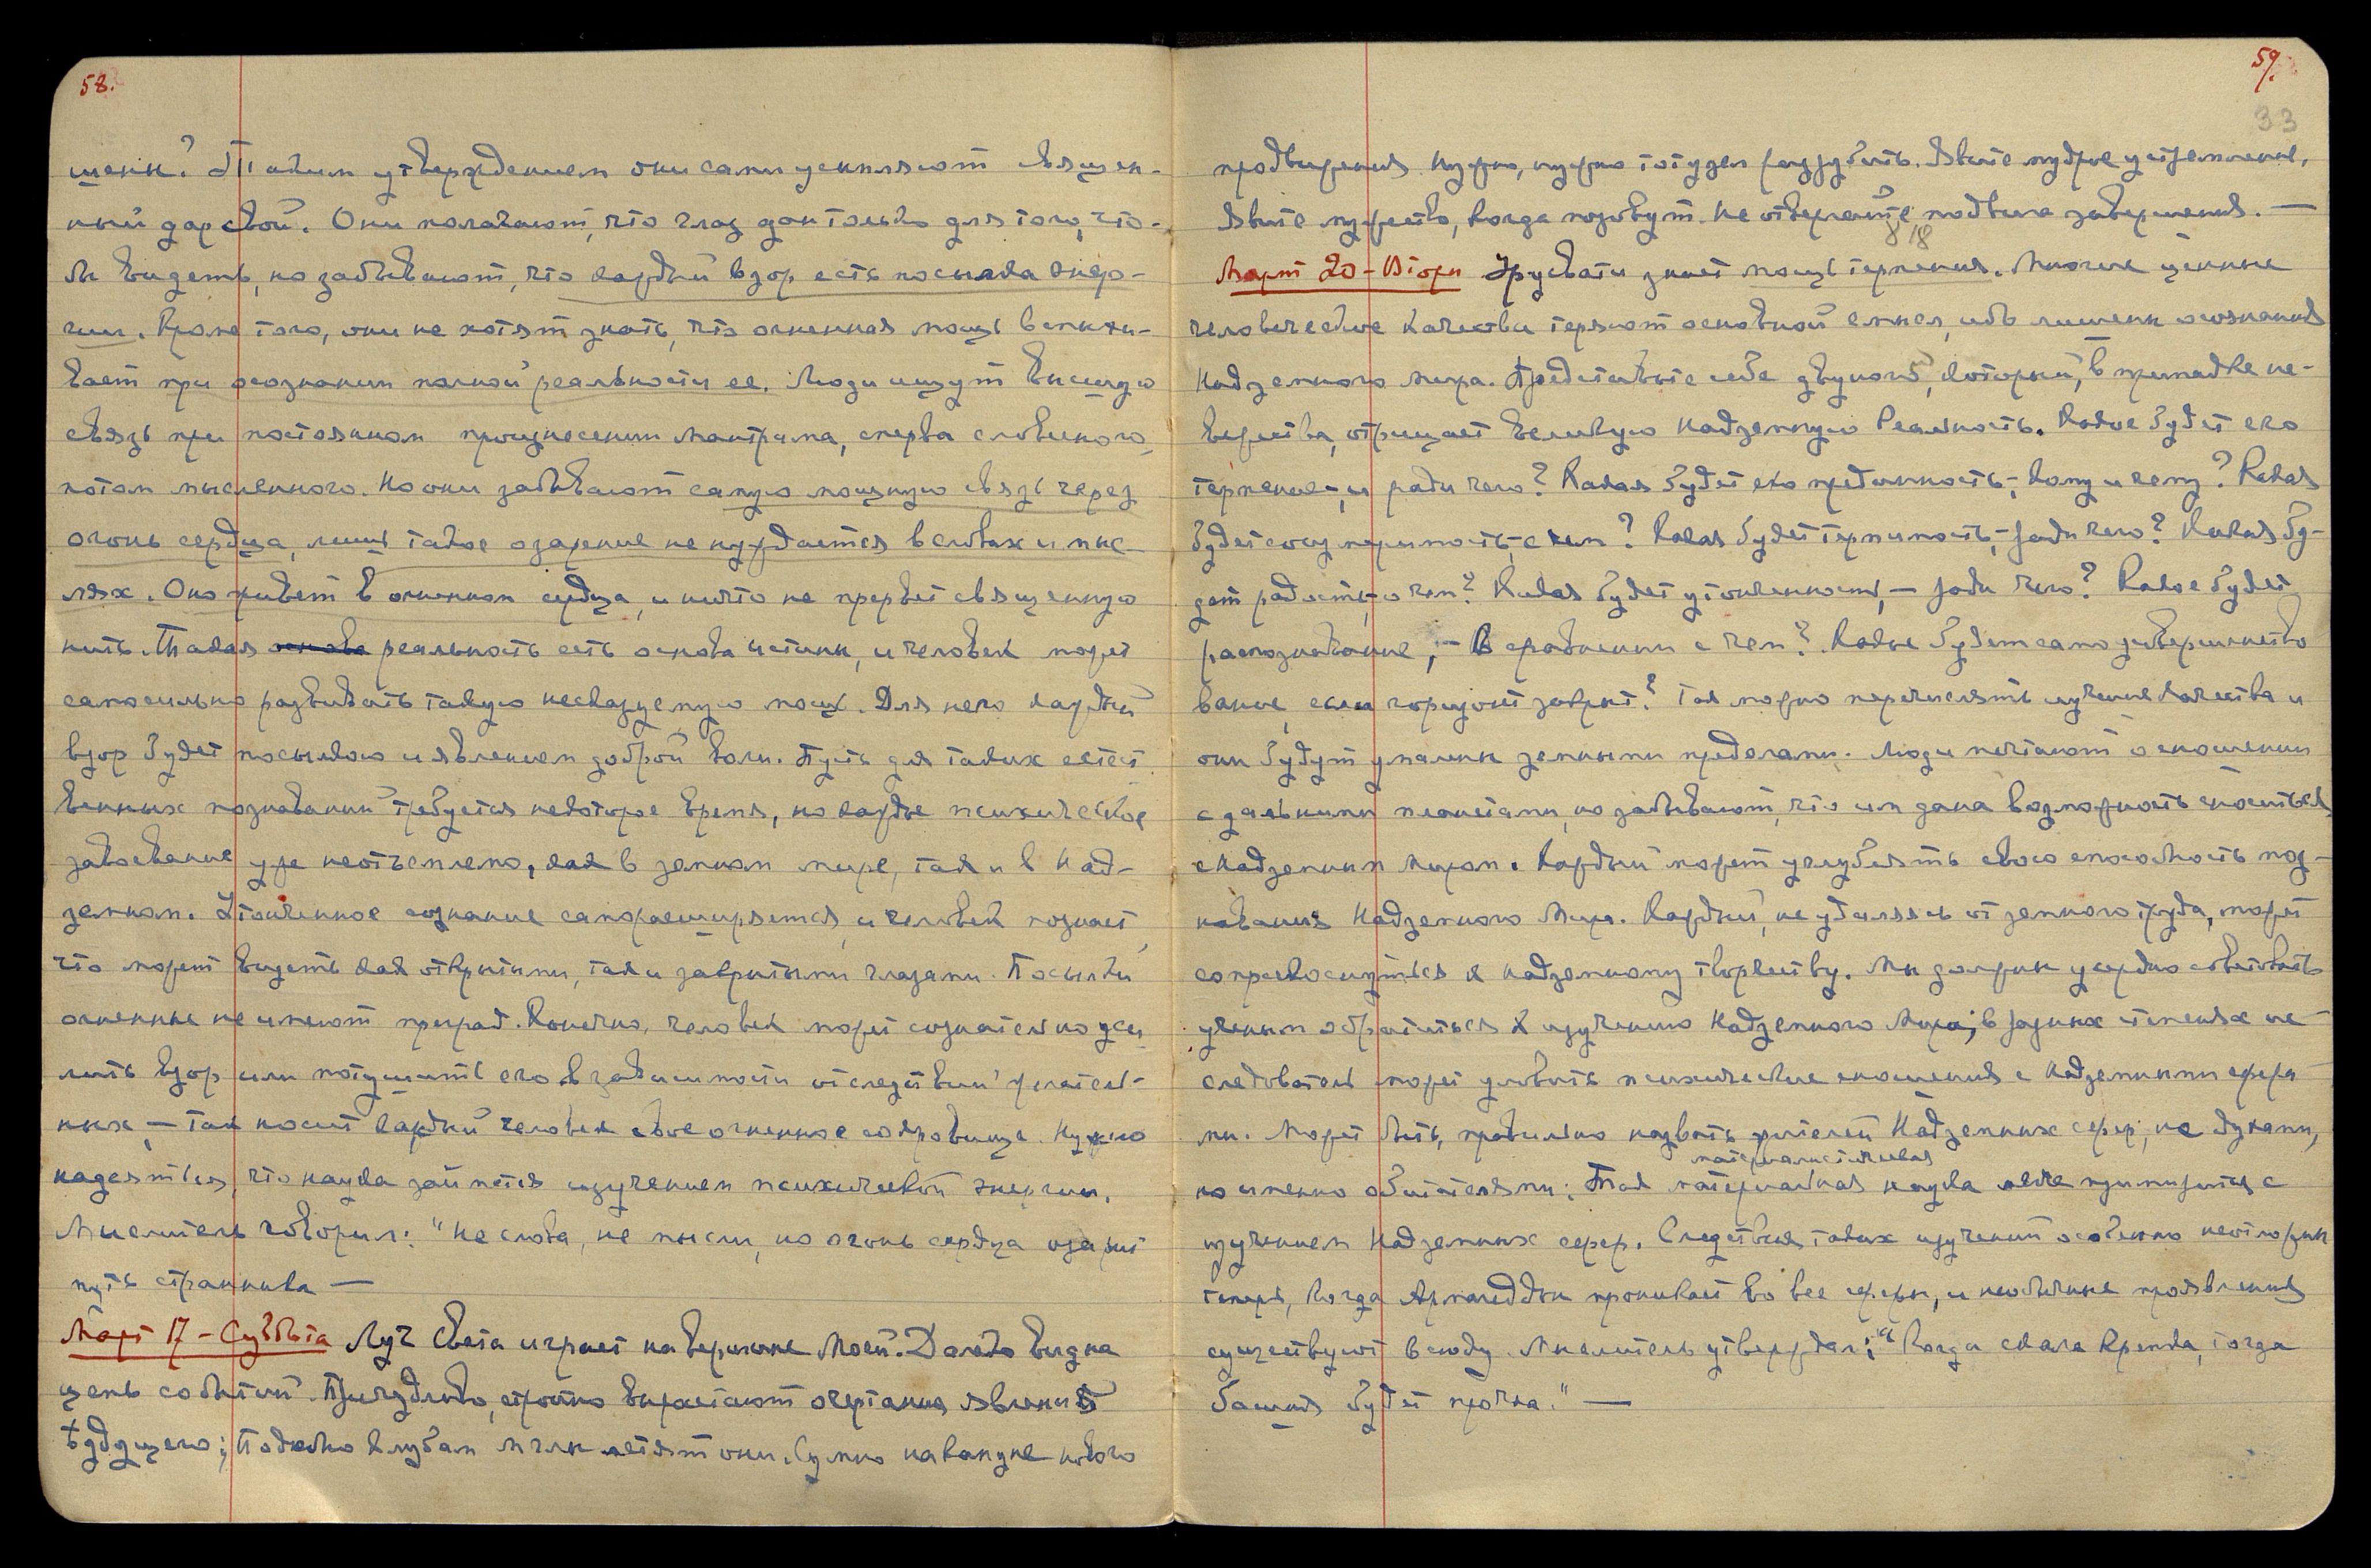 58.
щены? Таким утверждением они сами умиляют священ-
ный дар свой. Они полагают, что глаз дан только для того, что-
бы видеть, но забывают, что каждый взор есть посылка энер-
гии. Кроме того, они не хотят знать, что огненная мощь вспыхи-
вает при осознании полной реальности ее. Люди ищут высшую
связь при постоянном произнесении мантрама, сперва словесного,
потом мысленного. Но они забывают самую мощную связь через
огонь сердца, лишь такое озарение не нуждается в словах и мыс-
лях. Оно живет в огненном сердце, и ничто не прервет священную
нить. Такая основа реальность есть основа истины, и человек может
самосильно развивать такую несказуемую мощь. Для него каждый
взор будет посылкою и явлением доброй воли. Пусть для таких естест
венных познаваний требуется некоторое время, но каждое психическое
завоевание уже неотъемлемо, как в земном мире, так и в Над-
земном. Утонченное сознание саморасширяется, и человек познает,
что может видеть как открытыми, так и закрытыми глазами. Посылки
огненные не имеют преград. Конечно, человек может сознательно уси
лить взор или потушить его в зависимости от следствий желатель-
ных, — так носит каждый человек свое огненное сокровище. Нужно
надеяться, что наука займется изучением психической энергии.
Мыслитель говорил: "Не слова, не мысли, но огонь сердца озарит
путь странника —
Март 17 - Суббота Луч Света играет на вершине Моей. Далеко видна
цепь событий. Причудливо, стройно вырастают очертания явлений
будущего; Подобно клубам мглы летят они. Сумно накануне нового
59.
33
продвижения. Нужно, нужно тотузем раздубить. Явите мудрое устремление,
Явите мужество, когда позовут. Не отвергайте подвига завершения. —
818
Март 20 - Вторн Урусвати знает мощь терпения. Многие ценные
человеческие качества теряют основной смысл, ибо лишены осознания
Надземного Мира. Представьте себе двуногого, который, в припадке не-
вежества, отрицает великую Надземную Реальность. Какое будет его
терпение, и ради чего? Какая будет его преданность, - кому и чему? Какая
будет соизмеримость - с чем? Какая будет терпимость, - ради чего? Какая бу-
дет радость, - о чем? Какая будет утонченность, — ради чего? Какое будет
распознавание, — в сравнении с чем? Какое будет самоусовершенство
вание, если горизонт закрыт? Так можно перечислять лучшие качества и
они будут умалены земными пределами. Люди мечтают о сношении
с дальними планетами, но забывают, что им дана возможность сноситься
с Надземным Миром. Каждый может углублять свою способность поз-
навания Надземного Мира. Каждый, не удаляясь от земного труда, может
соприкоснуться к надземному творчеству. Мы должны усердно советовать
ученым обратиться к изучению Надземного Мира; в разных степенях ис
следователь может уловить психические сношения с Надземными сфера
ми. Может быть, правильно назвать жителей Надземных сфер, не духами,
материалистическая
но именно обитателями; Так материальная наука легче примирится с
изучением Надземных сфер. Следствия таких изучений особенно неотложны
теперь, когда Армагеддон проникает во все сферы, и необычные проявления
существуют всюду. Мыслитель утверждал: "Когда скала крепка, тогда
башня будет прочна." —